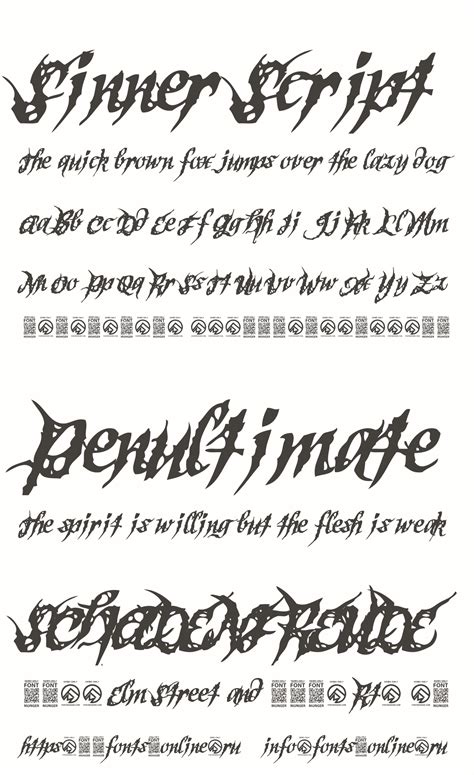 Sinner Script
The quick brown fox jumps over the lazy dog
Aa Bb Cc Dd Ee Ff Gg Hh Ii Jj Kk Ll Mm
Nn Oo Pp Qq Rr Ss Tt Uu Vv Ww Xx Yy Zz
Penultimate
The spirit is willing but the flesh is weak
SCHADENFREUDE
Elm Street and Rt
https fonts online ru info fonts online ru